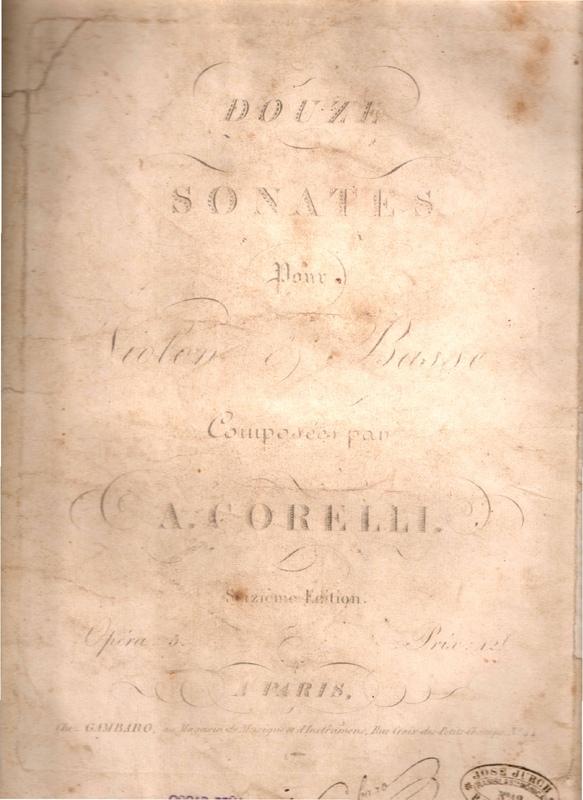 DOUZE
SONATES
Pour
Violon & Basse
Composées par
A. CORELLI.
Seizième Edition.
Opéra 5. Prix: 12f
A PARIS,
Chez GAMBARO, au Magasin de Musique et d'Instrumens, Rue Croix des Petits Champs, No. 44
JOSÉ JURCH